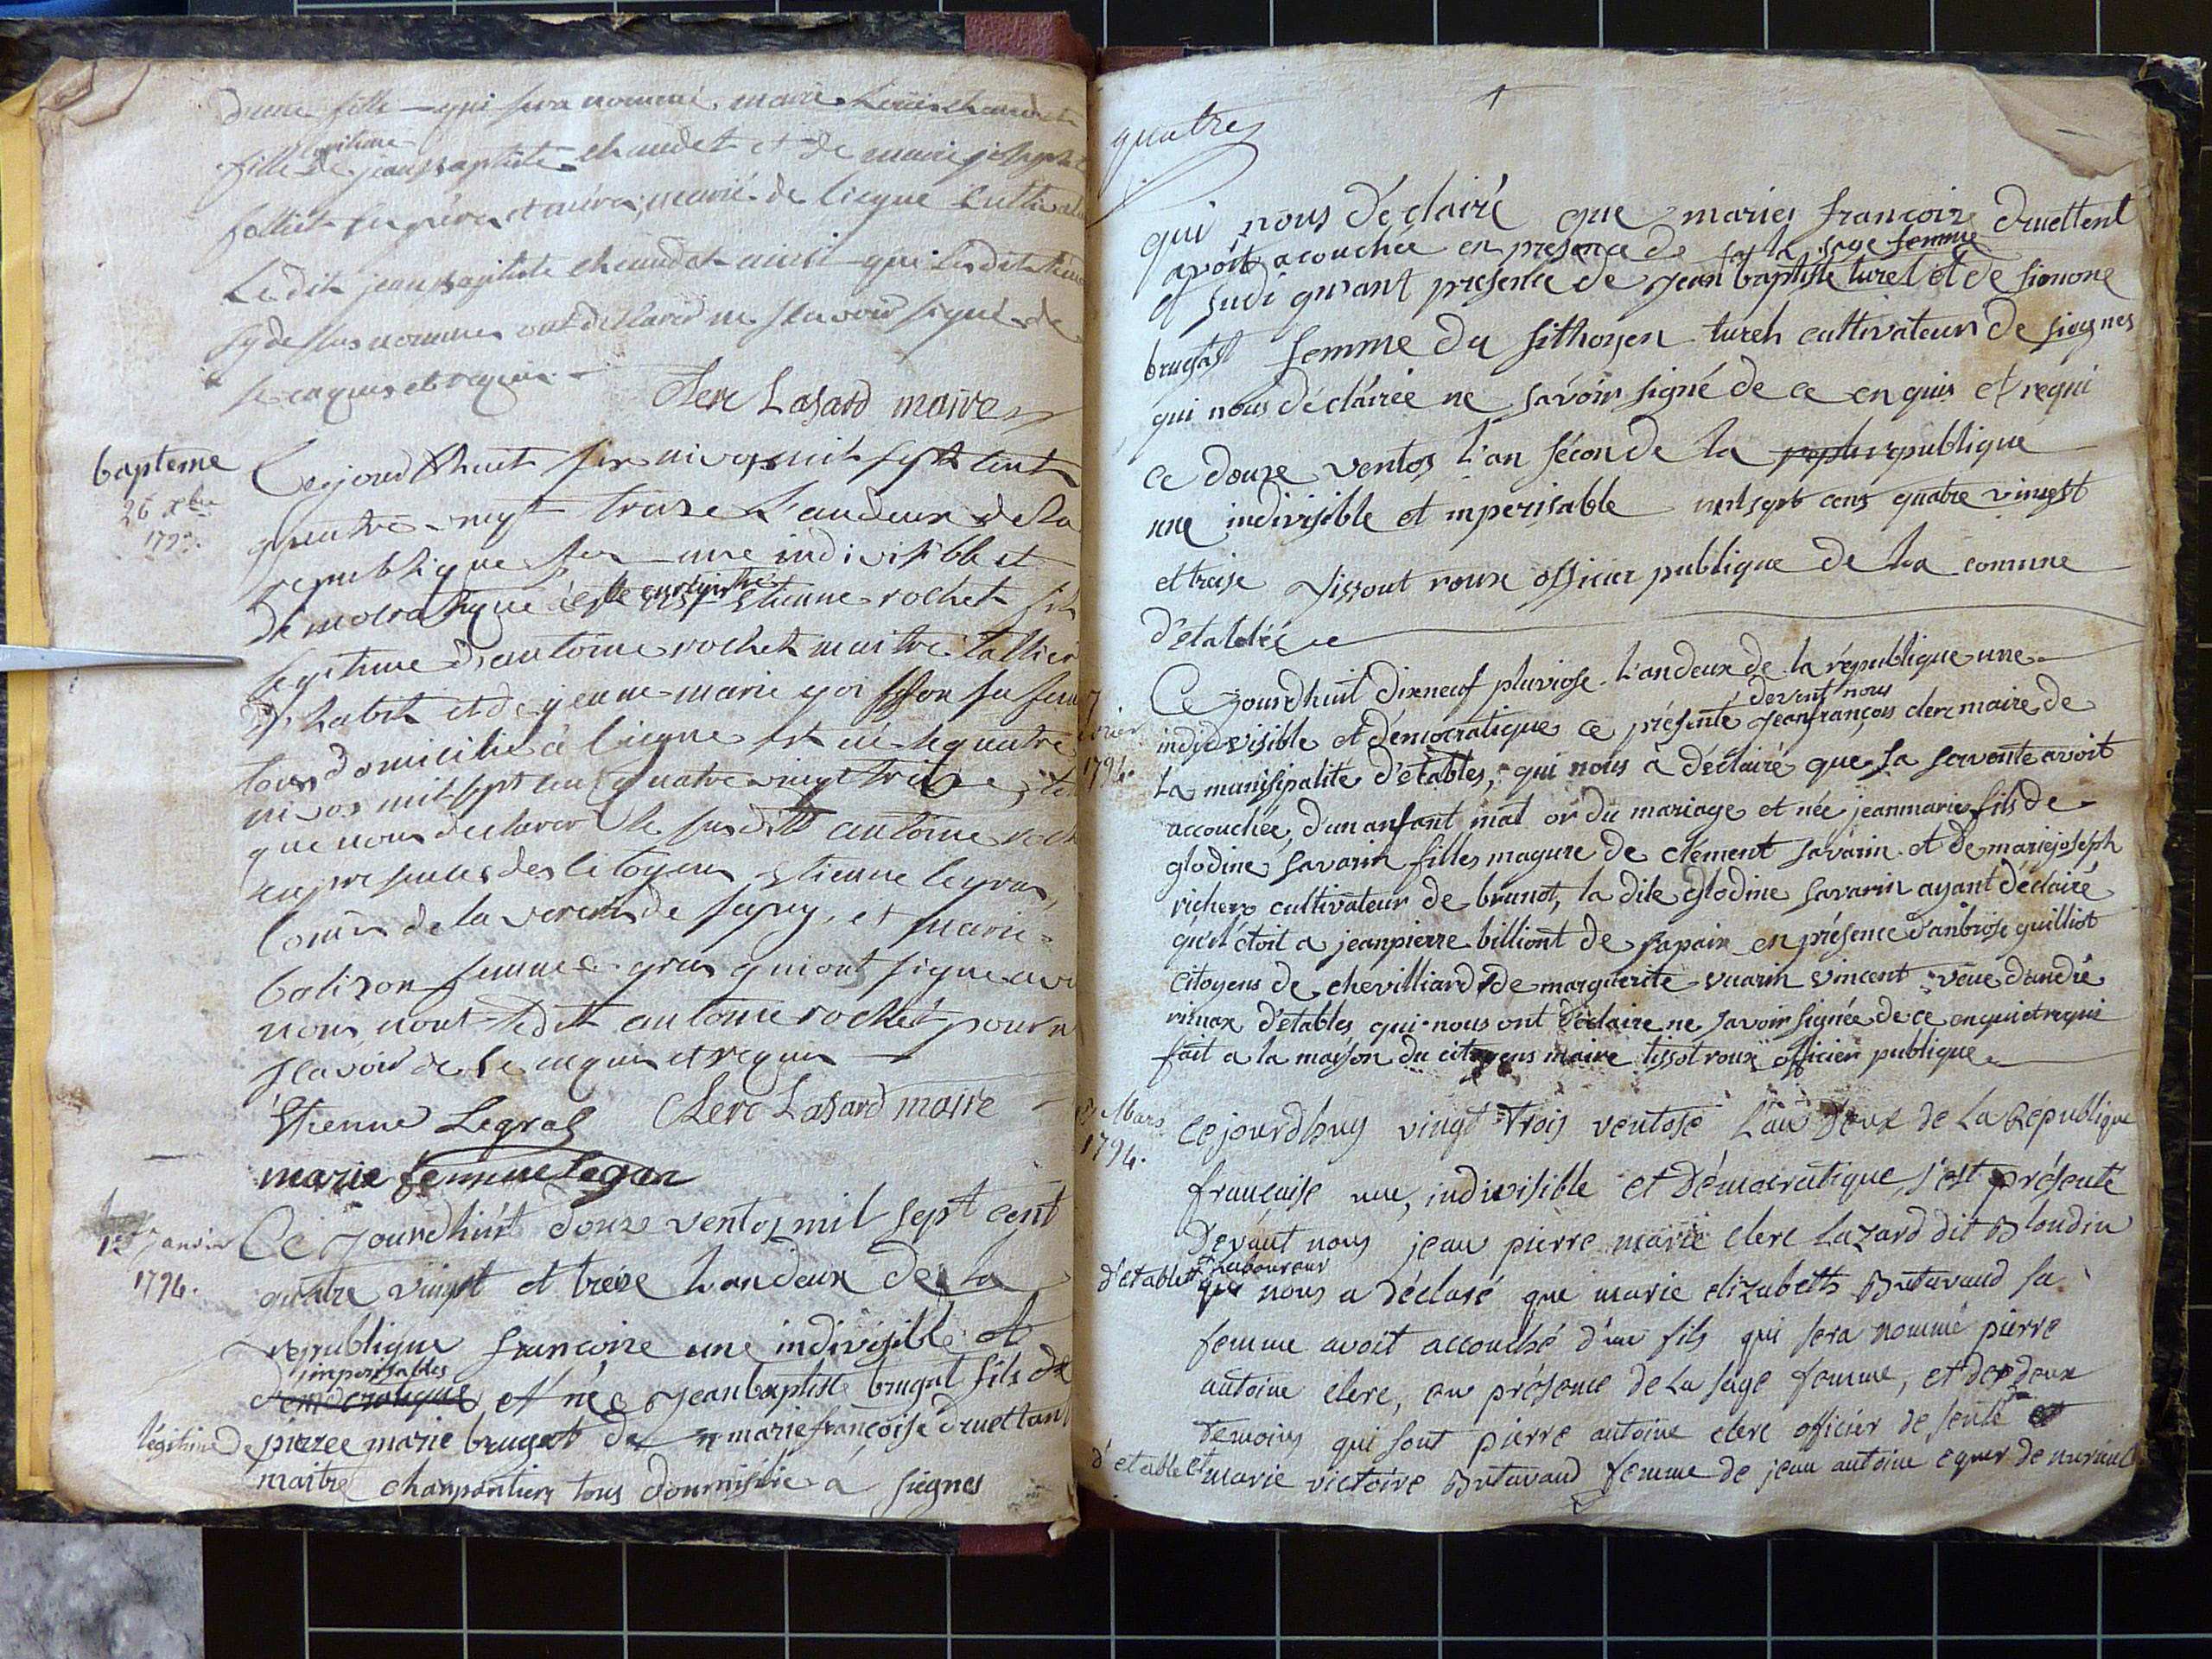 d'une fille qui sera nommé marie Louis chaudet
fille legitime de jean baptiste chaudet et de marie joseph
folliet ses père et mère, marié de Ciegne Cultivat
Ledit jean baptiste chaudet ainsi que lesdits témoin
sy dessus nommes ont déClaré ne sçavoir signé de
se enquis et requis
Clerc Lasard maire
bapteme
26 xbre
1793.
Cejourdhuit six nivos mil sept cent
quatre vingt traize L'andeux de la
republique une indivisible et
démocratique est Etienne rochet fils
legitime d'antoine rochet maitre tallier
d'habit et de jeane marie goisson sa fem
tous domicilié à Ciegne est né le quatre
nivos mil sept cent quatre vingt trise
que nous declarer le susditt antoine roch
en presences des Citoyens Etienne legras,
de la de et marie
balison femme gras qui ont signe ave
nous nont ledit antoine rochet pour n
sçavoir de se enquis et requis
Etienne Legras Clerc Lasard maire
marie femme legra
12 janvier
1794.
Ce jourdhuit douze ventos mil sept cent
quatre vingt et treise L'andeux de la
republique francoise une indivisible et
imperisables
democratique et né jean baptiste brugat fils de
légitime de pierre marie brugat de marie françoise druettant
maitre charpantiers tous doumisilié a siegnes
quatre
qui nous déclairé que marie francoise druettent
avoit acouchée en presence de la sage femme
et sudi qu'ant presence de jean baptiste turel et de simone
brugat femme du sithoyen tureh cultivateur de siegnes
qui nous déclairée ne savoir signé de ce enquis et requi
ce douze ventos l'an séconde la republique
une indivisible et inperisable milsept cens quatre vingst
et treise Tissout roux officier publique de la comune
d'etables
Ce jourdhuit dixneuf pluviose l'andeux de la république une
devent nous
indivisible et démocratique ce présenté jeanfrançois clerc maire de
1794.
La munisipalité d'etables, qui nous à déclairé que sa servente avoit
accouchée, d'un anfant mal or du mariage et née jeanmarie fils de
glodine savarin filles magure de clement savarin et de mariejoseph
richerx cultivateur de brenot, la dite glodine savarin ayant déclairé
qu'el étoit a jeanpierre billiont de sapain en présence d'anbroise guilliot
citoyens de chevilliard de marguerite vuarin vincent veue d'andré
rimax d'etables qui nous ont déclaire ne savoir signée de ce enqui et requi
fait a la maison du citoyens maire tissot roux officier publique
Mars
1794.
Cejourdhuy vingt trois ventose L'an deux de La République
française une, indivisible et démocratique, s'est présenté
devant nous jean pierre marie clerc Lazard dit Blondin
d'etables Laboureur
qui nous a déclaré que marie elizabeth Butavaud sa
femme avoit accouché d'un fils qui sera nommé pierre
antoine clerc, en présence de La sage femme, et de deux
temoins qui sont pierre antoine clerc officier de senté
d'etable et marie victoire Butavaud femme de jean antoine